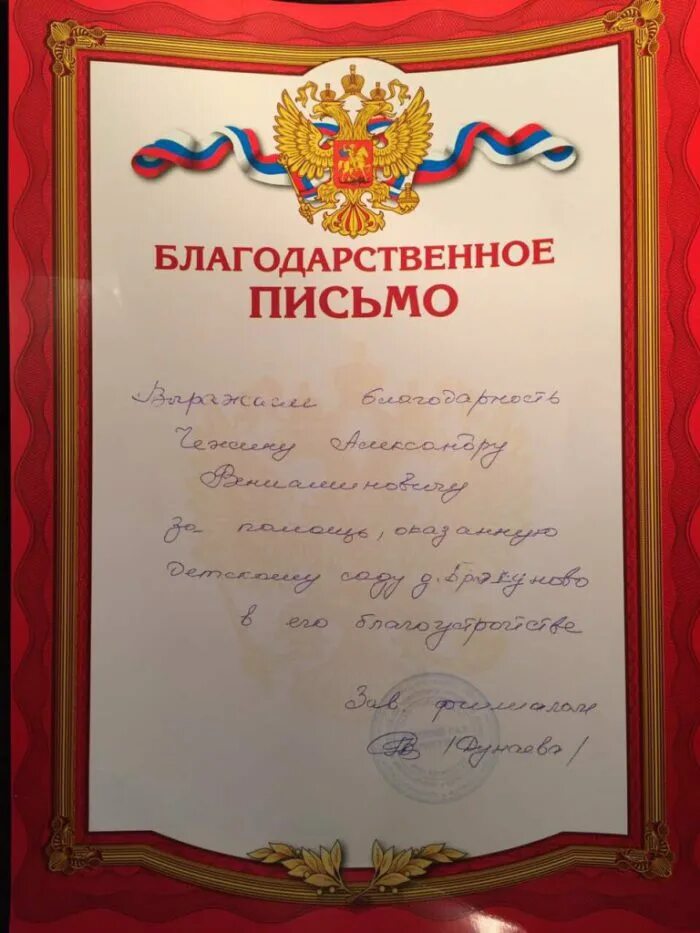 БЛАГОДАРСТВЕННОЕ
ПИСЬМО
Выражаем благодарность
Чежину Александру
Вениаминовичу
за помощь, оказанную
детскому саду д. Брякуново
в его благоустройстве
Зав. филиалом
/Дунаева/